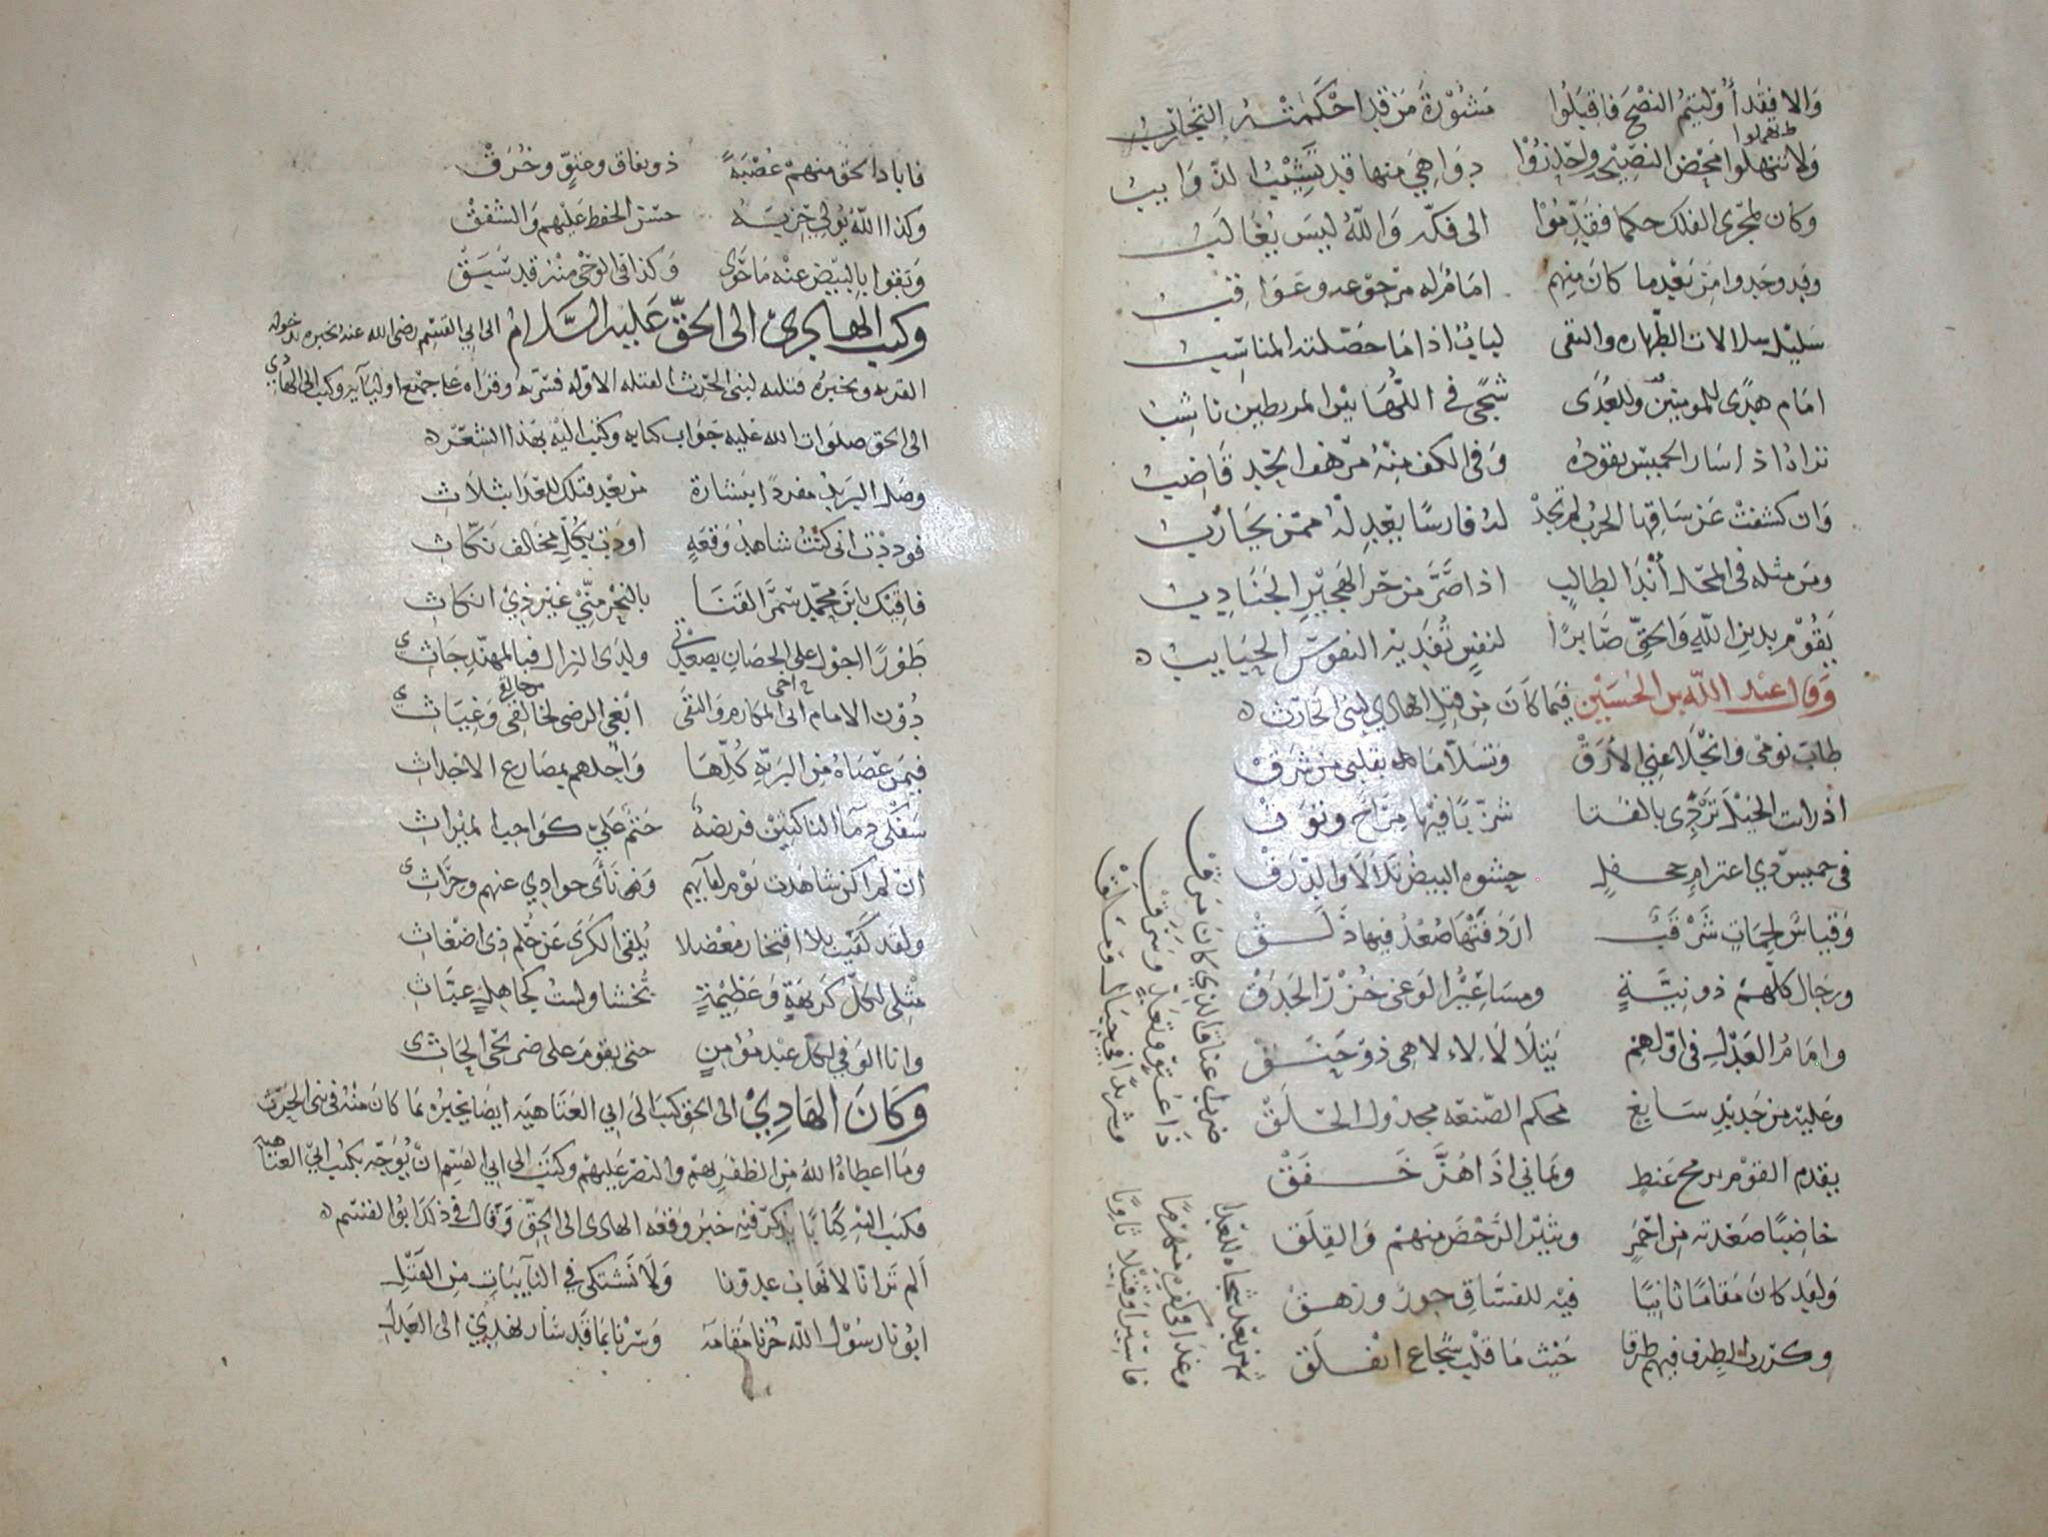 والا فقد أوليتم النصح فاقبلوا مشورة من قد احكمته التجارب
تهملوا
ولا تنهلوا محض النصيح واحذروا دواهي منها قد تشيب الذوايب
وكان لمجرى الفلك حكما فقدموا الى فكه والله ليس يغالب
وقد وجدوا من بعد ما كان منهم اماما له مرجوعه وعواقب
سليل سلالات الطهاره والتقى لباب اذا ما حصلته المناسب
امام هدى للمومنين وللعدى شجى في اللها بين المريطين ناشب
تراه اذا سار الخميس يقوده وفي الكف منه مرهف الحد قاضب
وان كشفت عن ساقها الحرب لم تجد له فارسا بعدله ممن يحارب
ومن مثله في المحل أندا لطالب اذا صر من حر الهجير الجنادب
يقوم بدين الله والحق صابرا لنفس تفديه النفوس الحبايب
وقال عبد الله بن الحسين فيما كان من قتل الهادي لبني الحارث
طاب نومي وانجلا عني الأرق وتسلا ما بقلبي من شرق
اذ رات الخيل تردى بالقنا شزبا فيها مراح ونزق
في خميس ذي اعترام جحفل حشوه البيض تلالا والدرق
وقياس لجمات شرقب اردفتها صعد فيها ذلق
ورجال كلهم ذو نية ومساعير الوغى خزر الحدق
وامام العدل في اولهم يتلالا لا ولا هي ذو حنق
وعليه من حديد سابغ محكم الصنعه مجدول الحلق
يقدم القوم برمح عنط ويماني اذا هز خفق
خاضبا صعدته من احمر ويثير الرحض منهم والفلق
ولقد كان مقاما ثانيا فيه للفساق جور وزهق
وكررت الطرف فيهم طرقا حيث ما قلب شجاع انفلق
ضرب اعناق الذي كان مرق
ذا عتو وتعد وسرق
وشريدا في جبال ومالق
ثم من بعد شجاه للعدا
وغدا في كفره منهزما
فاسيرا وقتيلا ثاويا
فاباد الحق منهم عصبة ذو نفاق وعتو وخرق
وكذا الله يولي حزبه حسن الحفظ عليهم والشفق
ونفوا بالبيض عنه ما حوى وكذا في الوحي منه قد سبق
وكتب الهادي الى الحق عليه السلام الى ابي القسم رضى الله عنه يخبره بدخوله
القريه ويخبره بقتله لبني الحرث القتله الاوله فسر به وقراه على جميع اوليايه وكتب الى الهادي
الى الحق صلوات الله عليه جواب كتابه وكتب اليه بهذا الشعر
وصل البريد مفردا ببشارة من بعد قتلك للعدا بثلاث
فوددت انى كنت شاهد وقعه اودت بكل مخالف نكاث
فاقيك يا بن محمد سمر القنا بالنحر مني غير ذي انكاث
طورا اجول على الحصان بصعدتي ولدى النزال فبالمهند جاثي
دون الامام اخي المكارم والتقى ابغي الرضى لخالقي وغياثي
فيمن عصاه من البريه كلها واحلهم بمصارع الاجداث
سفكي دماء الناكثين فريضه حتم علي كواجب الميراث
ان لم اكن شاهدت يوم لقايهم ونهى ناى جوادي عنهم وحراثي
ولقد كفيت بلا افتخار معضلا يلقى الكرى عن حلم ذي اضغاث
مثلي لكل كريهة وعظيمة يخشا ولست كجاهل عباث
وانا الوفي لكل عبد مؤمن حتى يقوم على ضريحي الجاثي
وكان الهادي الى الحق كتب الى ابي العتاهيه ايضا يخبره بما كان منه في بني الحرث
وما اعطاه الله من الظفر بهم والنصر عليهم وكتب الى ابي القسم ان يوجه بكتب ابي العتاهيه
فكتب اليه كتابا يذكر فيه خبر وقعه الهادي الى الحق وقال في ذكرا بو القسم
الم تر انا لا نهاب عدونا ولا نشتكي في النايبات من القتل
ابونا رسول الله حزنا مقامه وسرنا بما قد سار نهدي الى العدل